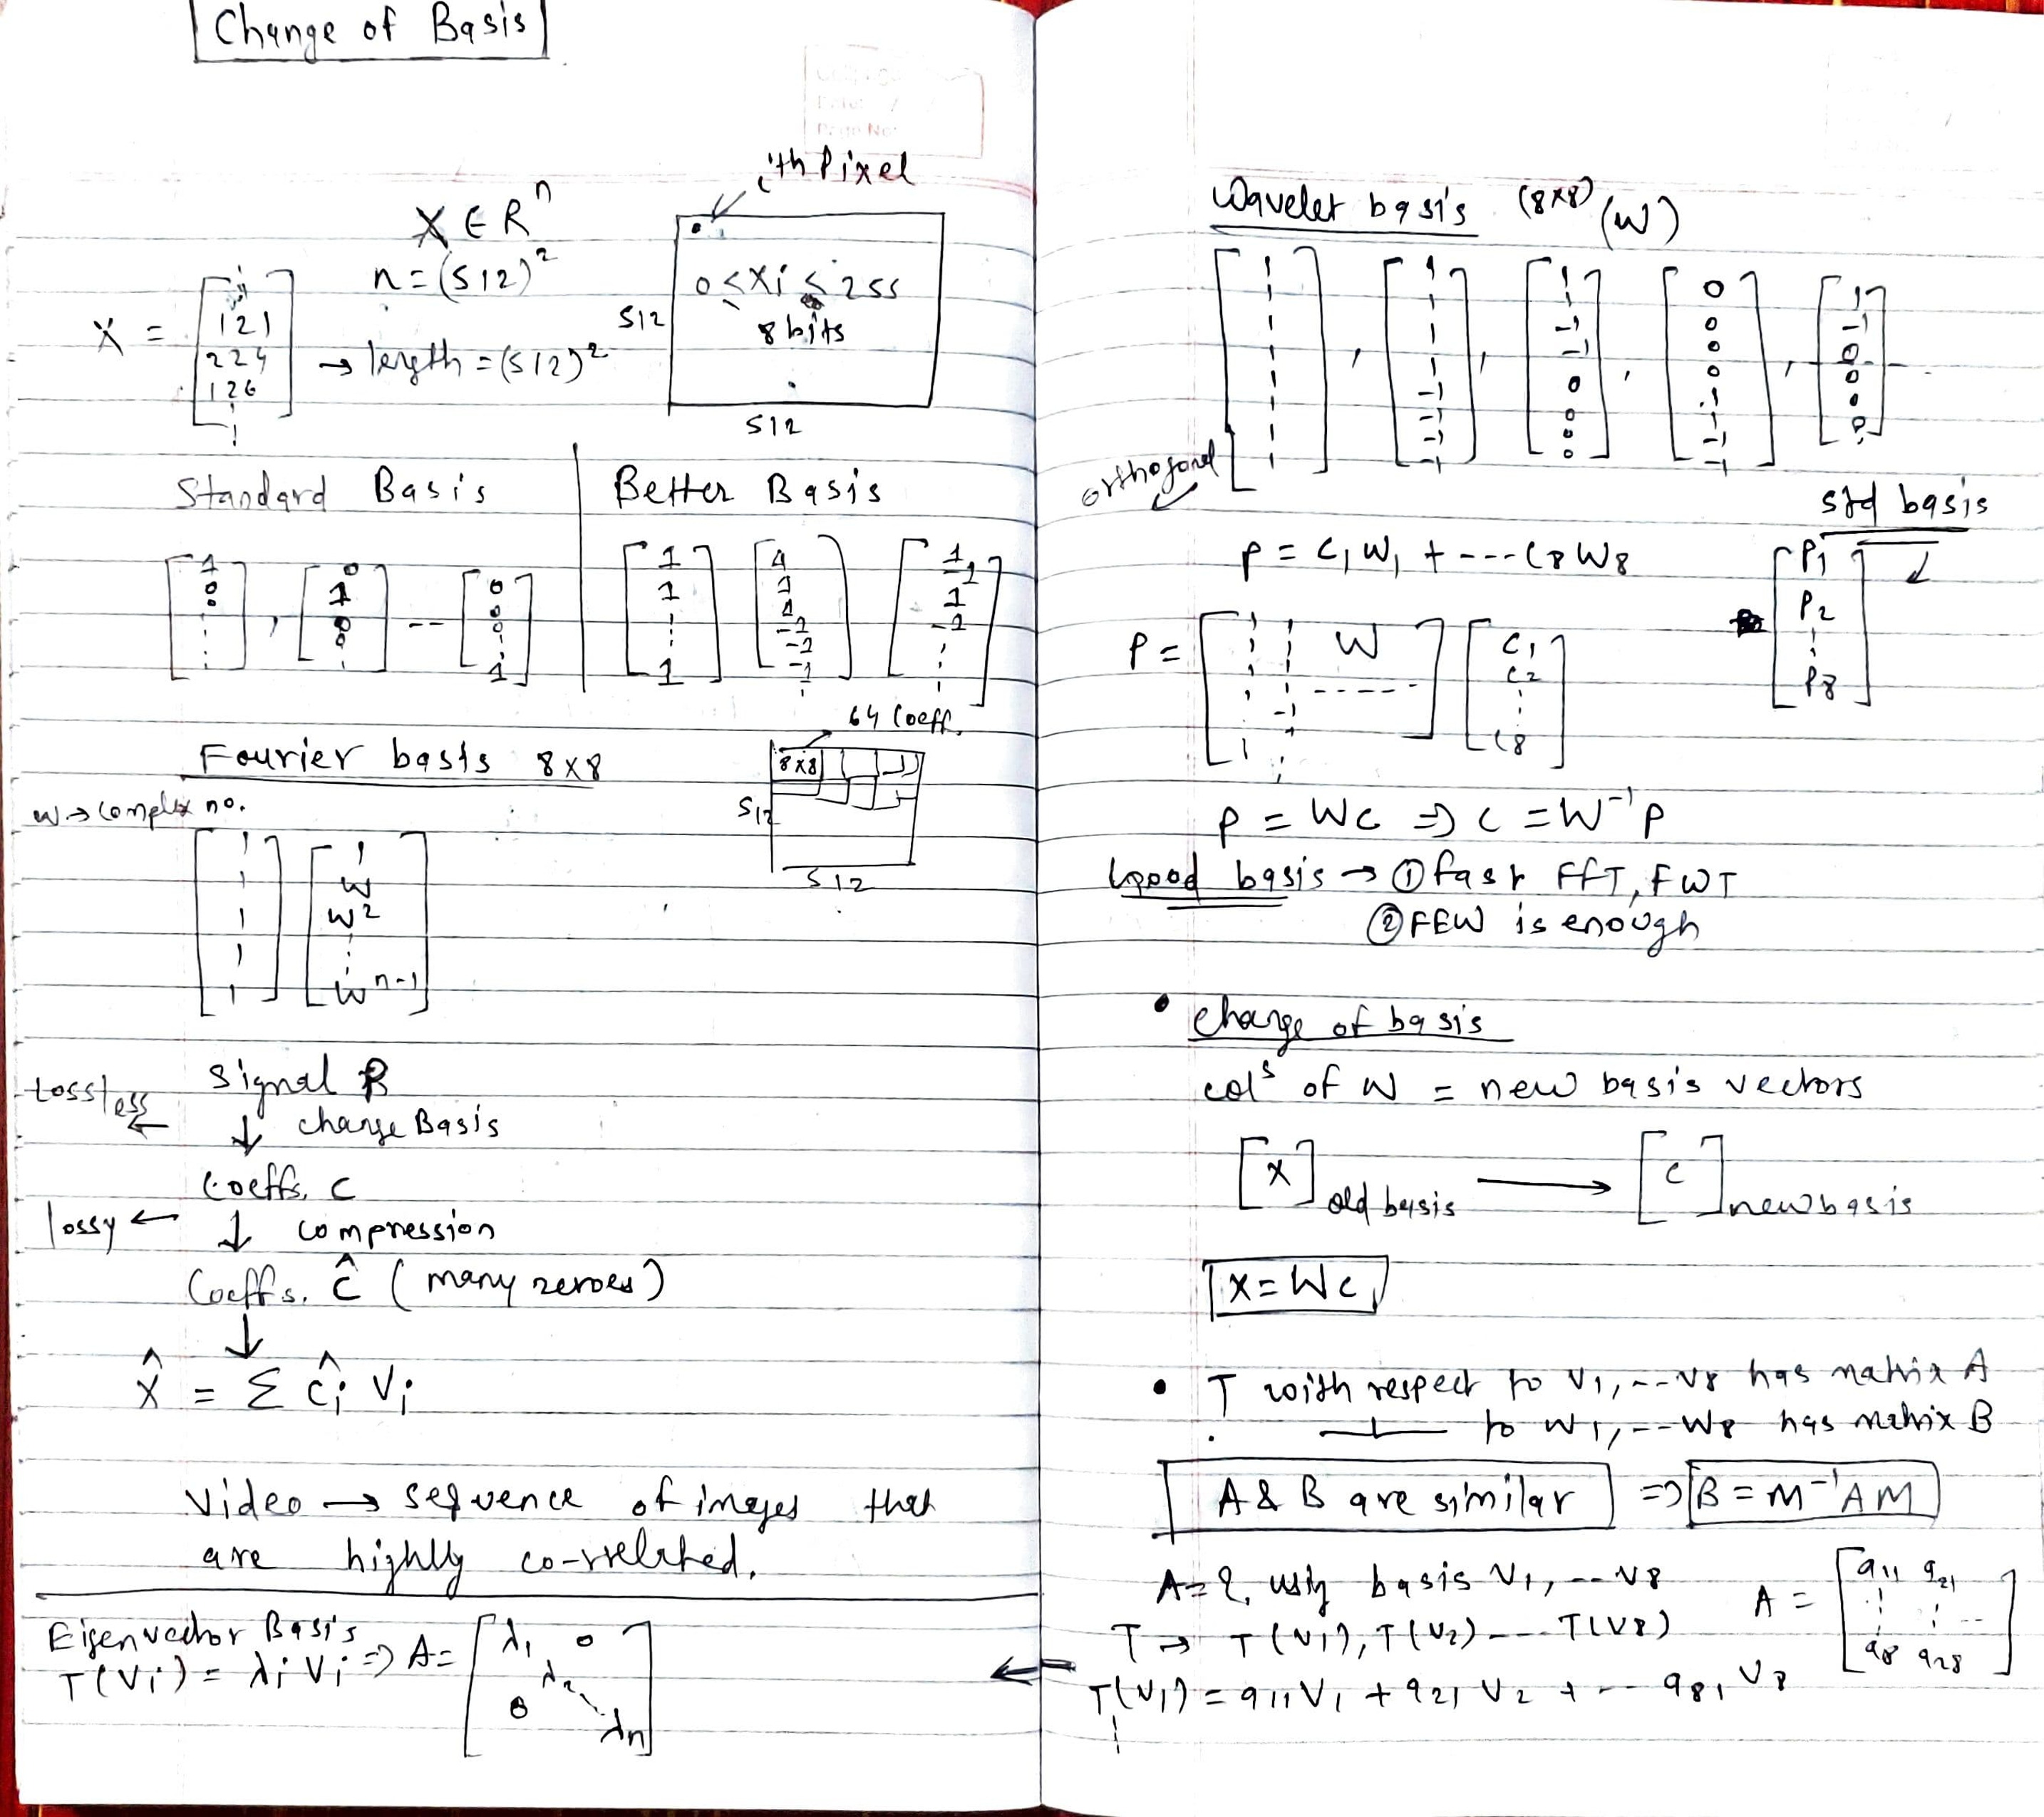 Change of Basis
ith Pixel
X ∈ R^n
n = (512)^2
X = [ ⋮ 121 224 126 ⋮ ] → length = (512)^2
0 ≤ Xi ≤ 255
8 bits
512
512
Standard Basis | Better Basis
[1 0 0 ⋮], [0 1 0 0 ⋮] -- [0 0 0 ⋮ 1] | [1 1 ⋮ 1] [1 1 1 -1 -1 -1 ⋮] [1 -1 1 -1 ⋮]
64 Coeff.
Fourier basis 8x8
8x8
512
512
w → complex no.
[1 1 1 1 1 1] [1 w w^2 ⋮ w^n-1]
Signal P
Lossless ← ↓ change Basis
Coeffs. c
lossy ← ↓ compression
Coeffs. ĉ (many zeroes)
↓
x̂ = Σ ĉi Vi
Video → sequence of images that
are highly co-rrelated.
Eigenvector Basis
T(Vi) = λi Vi => A = [λ1 0 λ2 0 λn]
Wavelet basis (8x8) (W)
[1 1 1 1 1 1 1 1], [1 1 1 1 -1 -1 -1 -1], [1 1 -1 -1 0 0 0 0], [0 0 0 0 1 1 -1 -1], [1 -1 0 0 0 0]
orthogonal
std basis
P = C1 W1 + --- C8 W8
[P1 P2 ⋮ P8]
P = [W] [C1 C2 ⋮ C8]
P = WC => C = W^-1 P
Good basis → ① fast FFT, FWT
② FEW is enough
• Change of basis
cols of W = new basis vectors
[x] old basis → [c] new basis
X = Wc
• T with respect to V1, -- V8 has matrix A
to W1, -- W8 has matrix B
A & B are similar => B = M^-1 A M
A = ?, using basis V1, -- V8
A = [a11 a21 ⋮ ⋮ -- a8 a28]
T → T(V1), T(V2) --- T(V8)
T(V1) = a11 V1 + a21 V2 + -- a81 V8